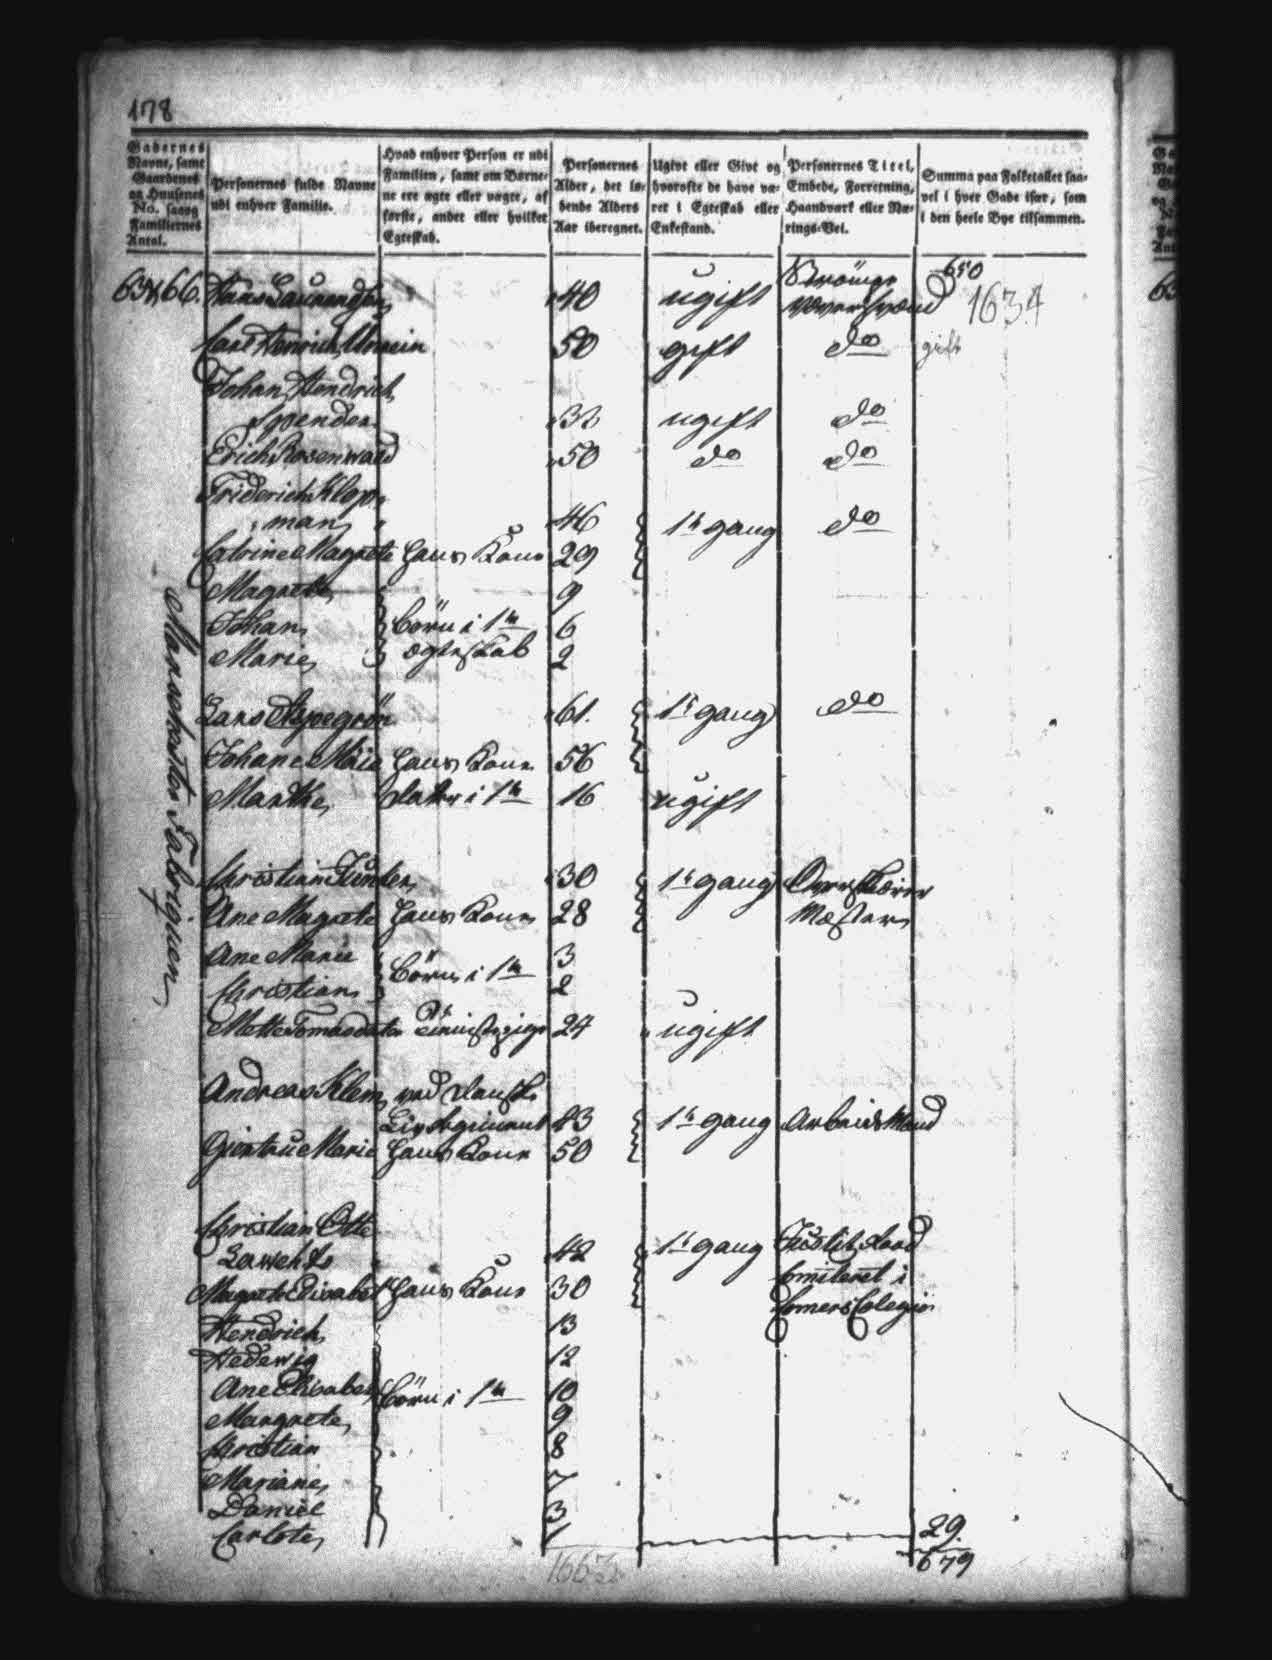 178
Gadernes Navne, samt Gaardenes og Huusenes No. saavg Familiernes Antal.
Personernes fulde Navne udi enhver Familie.
Hvad enhver Person er udi Familien, samt om Børnene ere ægte eller uægte, af første, andet eller hvilket Egteskab.
Personernes Alder, det løbende Alders Aar iberegnet.
Ugivt eller Givt og hvorofte de have været i Egteskab eller Enkestand.
Personernes Titel, Embede, Forretning, Haandværk eller Nærings-Vei.
Summa paa Folketallet saavel i hver Gade især, som i den heele Bye tilsammen.
650
Hans 40 ugift 1634
Carl Henrich 50 gift do gift
Johan Hendrich
Spender 33 ugift do
Erich Rosenwald 50 do do
Friderich Klop
man 46 1te gang do
Catrine Magrete hans Kone 29
Magrete 9
Johan børn i 1te 6
Marie ægteskab 2
Manchester Fabriquen
Lars Aspegrøn 61 1te gang do
Johane Marie hans Kone 56
Marthe dater i 1te 16 ugift
Christian Junker 30 1te gang Overskærer
Ane Magrete hans Kone 28 Mæster
Ane Marie 3
børn i 1te
Christian 2
Mette Tomasdater Tienistepige 24 ugift
Andreas Klem ved danske
Liv Regiment 43 1te gang Arbeidsmand
Giertrue Marie hans Kone 50
Christian Otte
42 1te gang Justits Raad
Magrete Elisabet hans Kone 30 Comiteret i
Comers Colegio
Hendrich 13
Hedewig 12
Ane Elisabet børn i 1te 10
Margrete 9
Christian 8
Mariane 7
Daniel 3
Carlote 1 29
1663 679